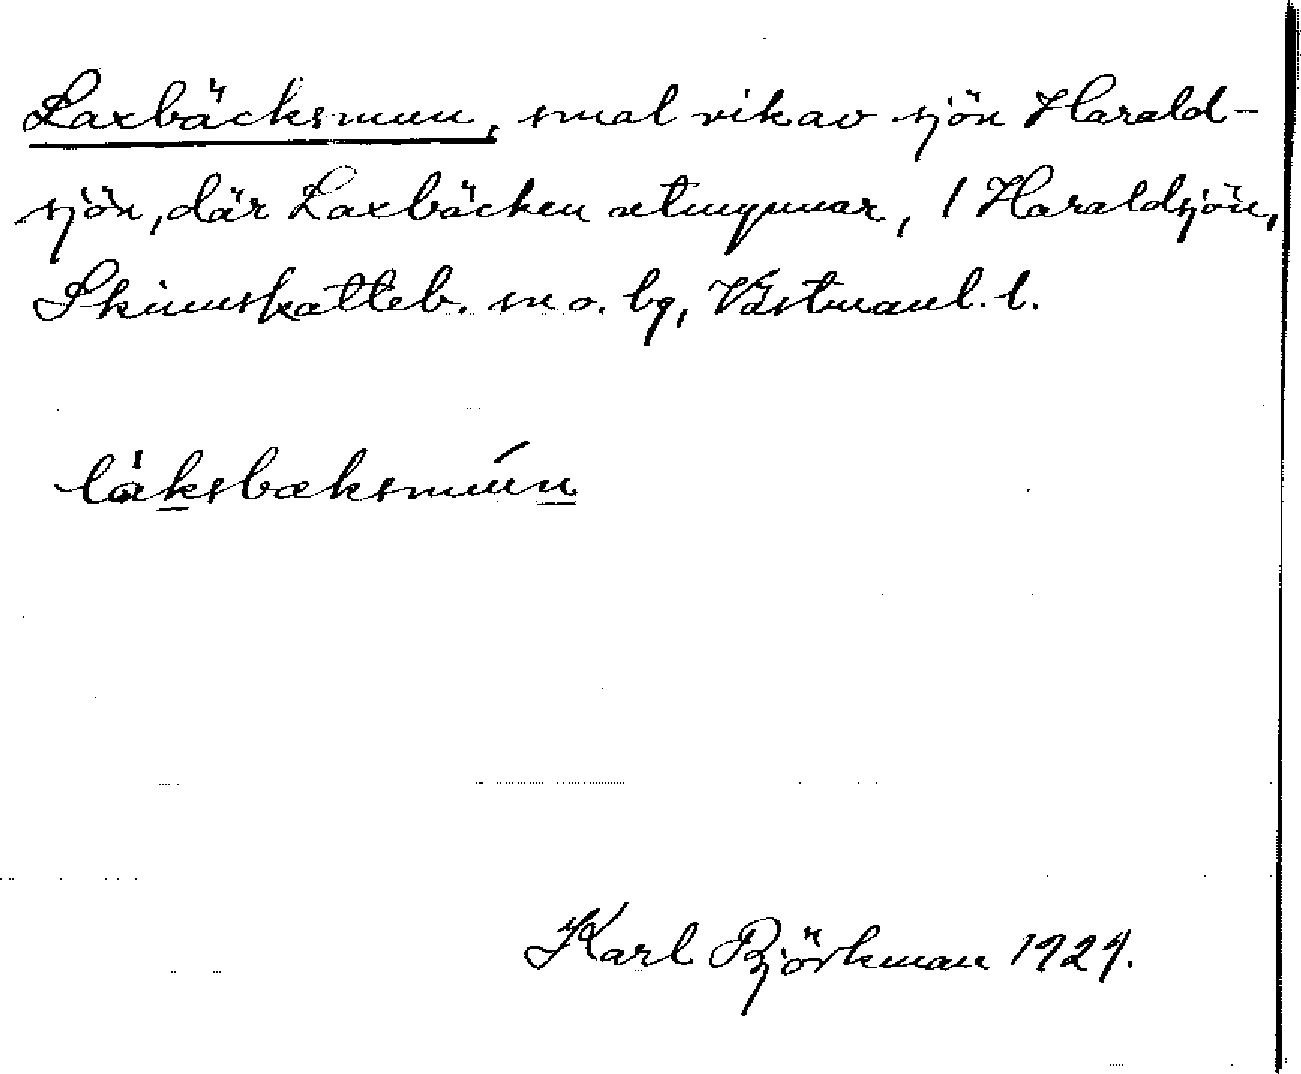 Laxbäcksmun, smal vik av sjön Harald-
sjön, där Laxbäcken utmynnar, / Haraldsjön,
Skinnskatteb. sn o. bg, Västmanl. l.
làksbæksmún
Karl Björkman 1924.